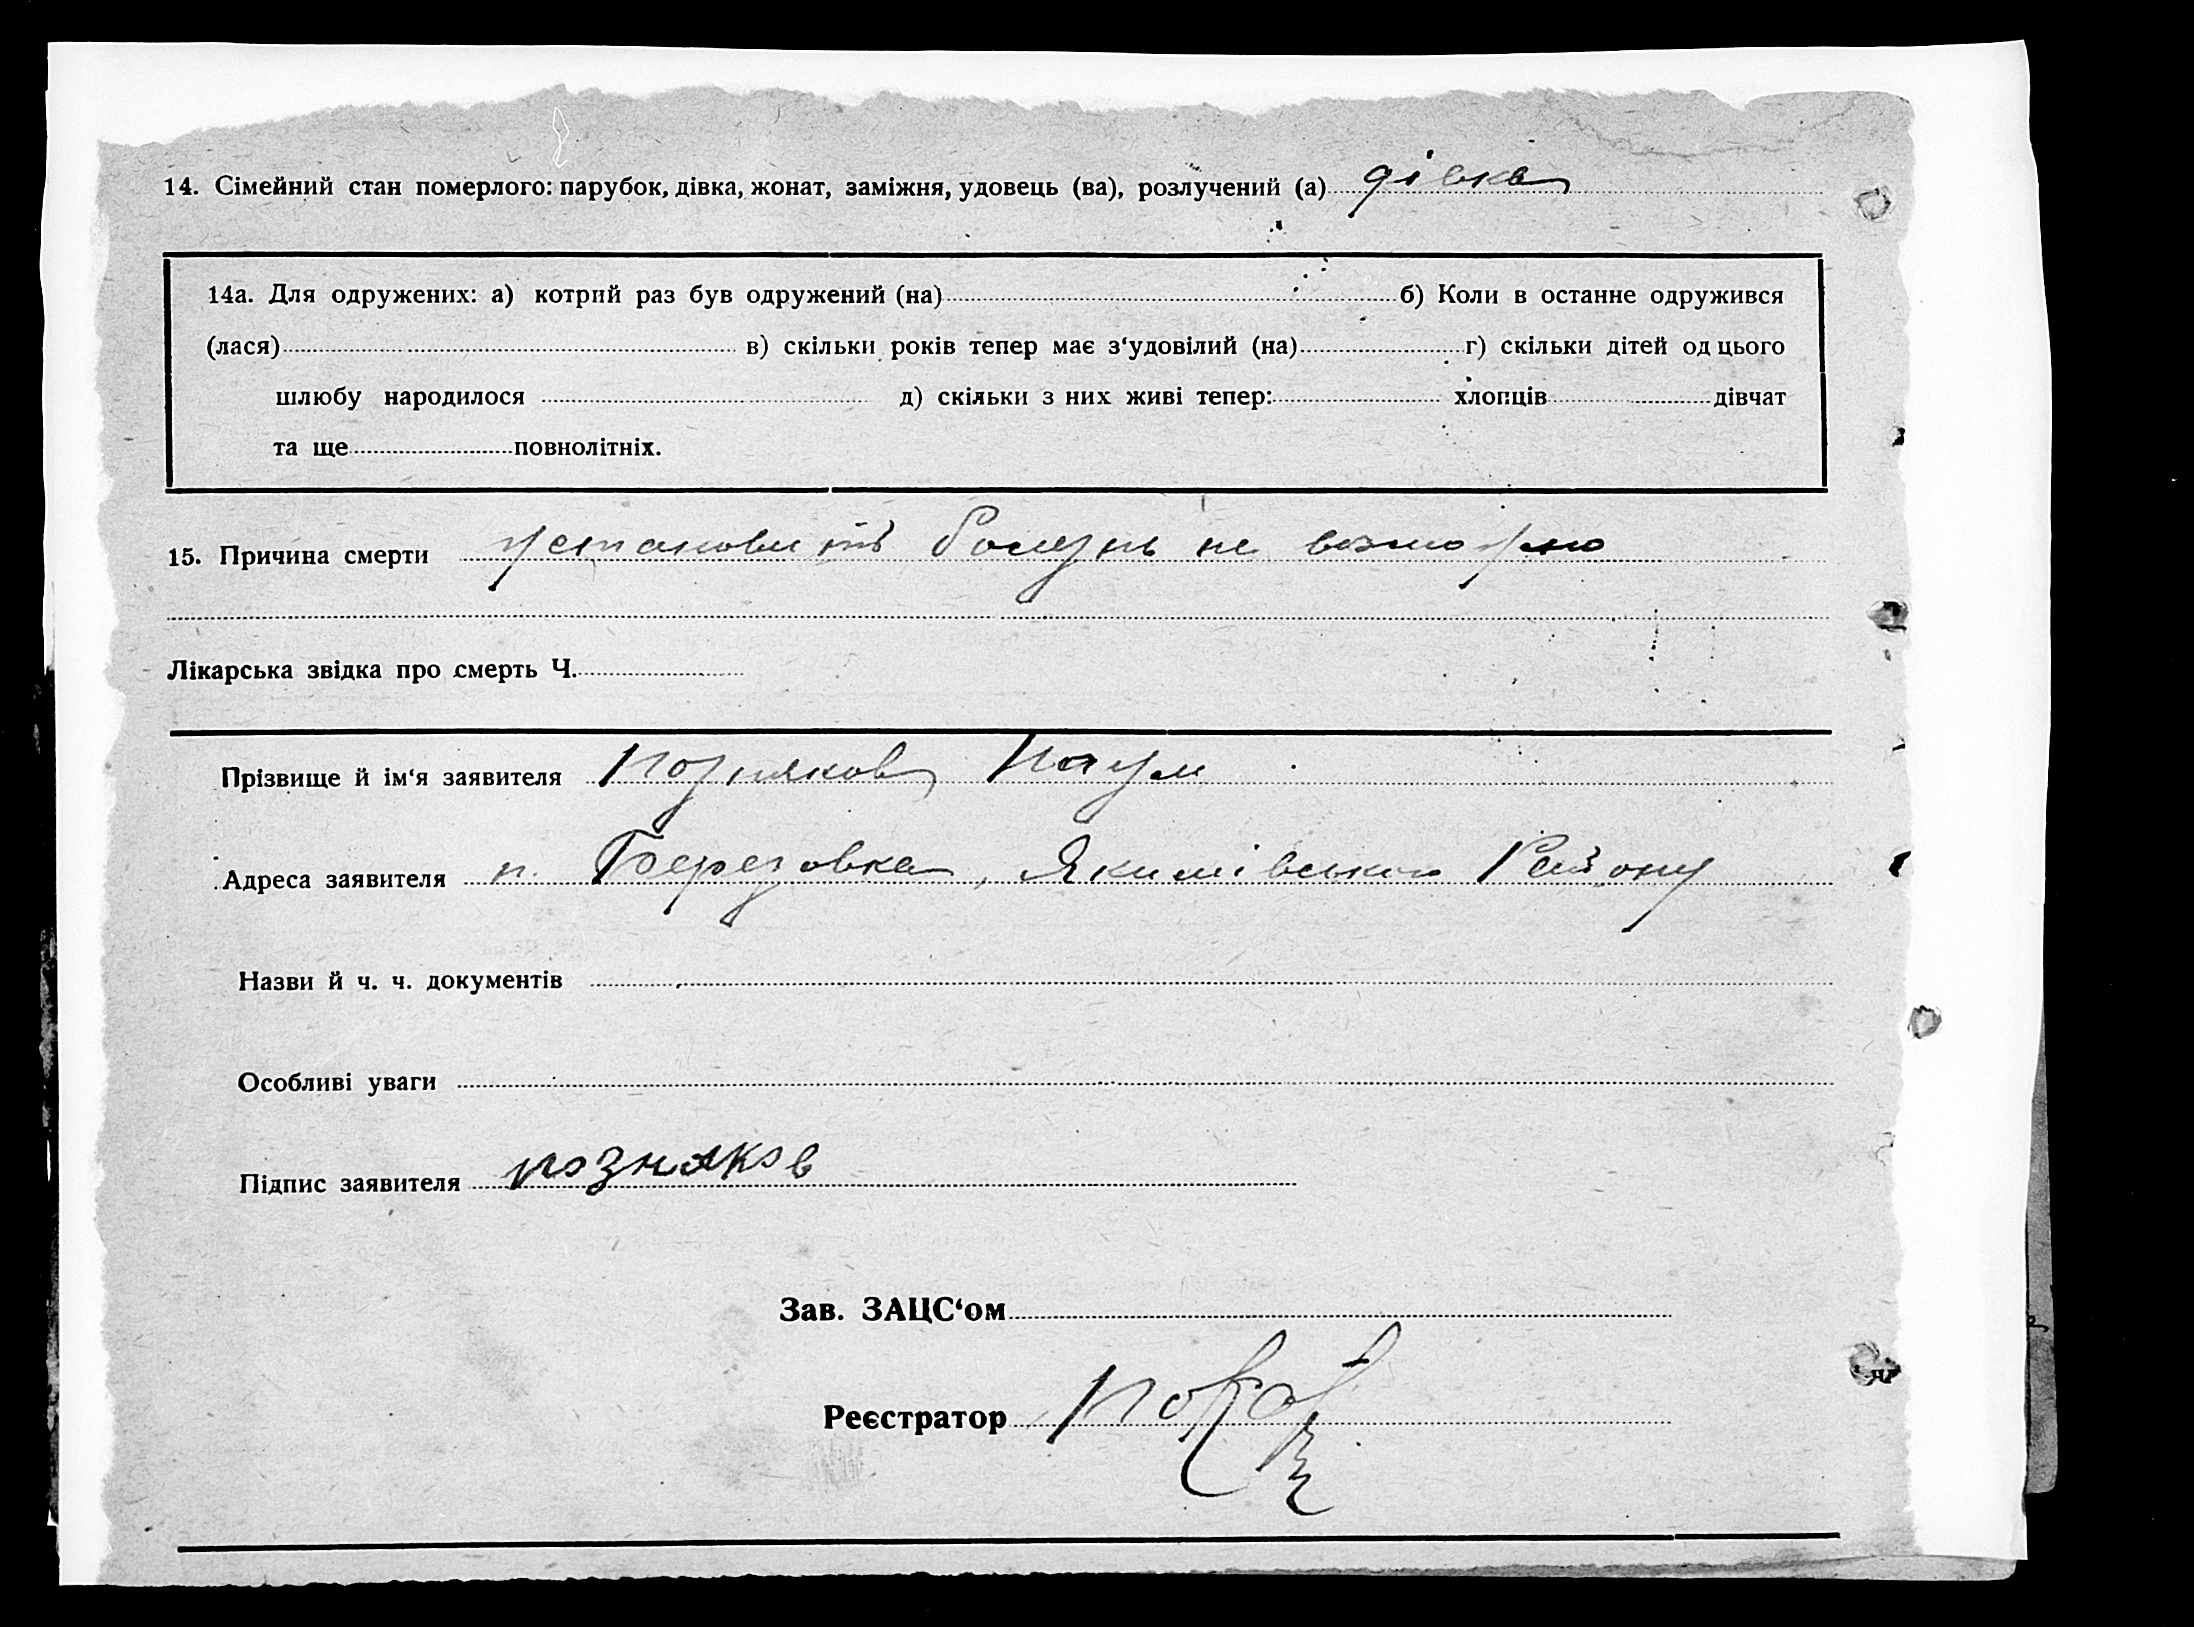 14. Сімейний стан померлого: парубок, дівка, жонат, заміжня, удовець (ва), розлучений (а) дівка
14а. Для одружених: а) котрий раз був одружений (на) б) Коли в останне одружився
(лася) в) скільки років тепер має з‘удовілий (на) г) скільки дітей од цього
шлюбу народилося д) скільки з них живі тепер: хлопців дівчат
та ще повнолітніх.
15. Причина смерти установить болезнь не возможно
Лікарська звідка про смерть Ч.
Прізвище й ім‘я заявителя Позняков Наум
Адреса заявителя п. Березовка, Якимівського Району
Назви й ч. ч. документів
Особливі уваги
Підпис заявителя позняков
Зав. ЗАЦС‘ом
Реєстратор